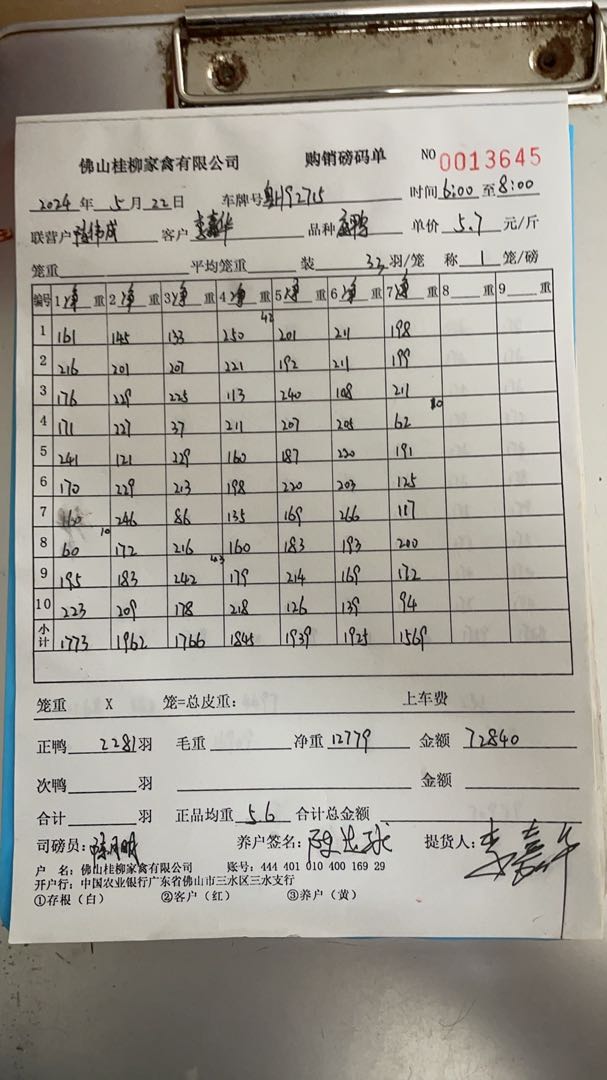 佛山桂柳家禽有限公司 购销磅码单 NO 0013645
2024 年 5 月 22 日 车牌号 粤H92715 时间 6:00 至 8:00
联营户 伟成 客户 李嘉华 品种 鸭 单价 5.7 元/斤
笼重 平均笼重 装 33 羽/笼 称 1 笼/磅
编号 1 净 重 2 净 重 3 净 重 4 净 重 5 净 重 6 净 重 7 净 重 8 重 9 重
42
1 161 145 133 250 201 211 198
2 216 201 207 221 192 211 199
3 176 229 225 113 240 108 211
10
4 171 227 37 211 207 205 62
5 241 121 229 160 187 220 191
6 170 229 213 198 220 203 125
7 160 246 86 135 169 266 117
10
8 60 172 216 160 183 193 200
43
9 195 183 242 179 214 169 172
10 223 209 178 218 126 139 94
小计 1773 1962 1766 1845 1939 1925 1569
笼重 X 笼=总皮重: 上车费
正鸭 2281 羽 毛重 净重 12779 金额 72840
次鸭 羽 金额
合计 羽 正品均重 5.6 合计总金额
司磅员: 养户签名: 提货人: 李嘉华
户 名: 佛山桂柳家禽有限公司 账号: 444 401 010 400 169 29
开户行: 中国农业银行广东省佛山市三水区三水支行
①存根（白） ②客户（红） ③养户（黄）